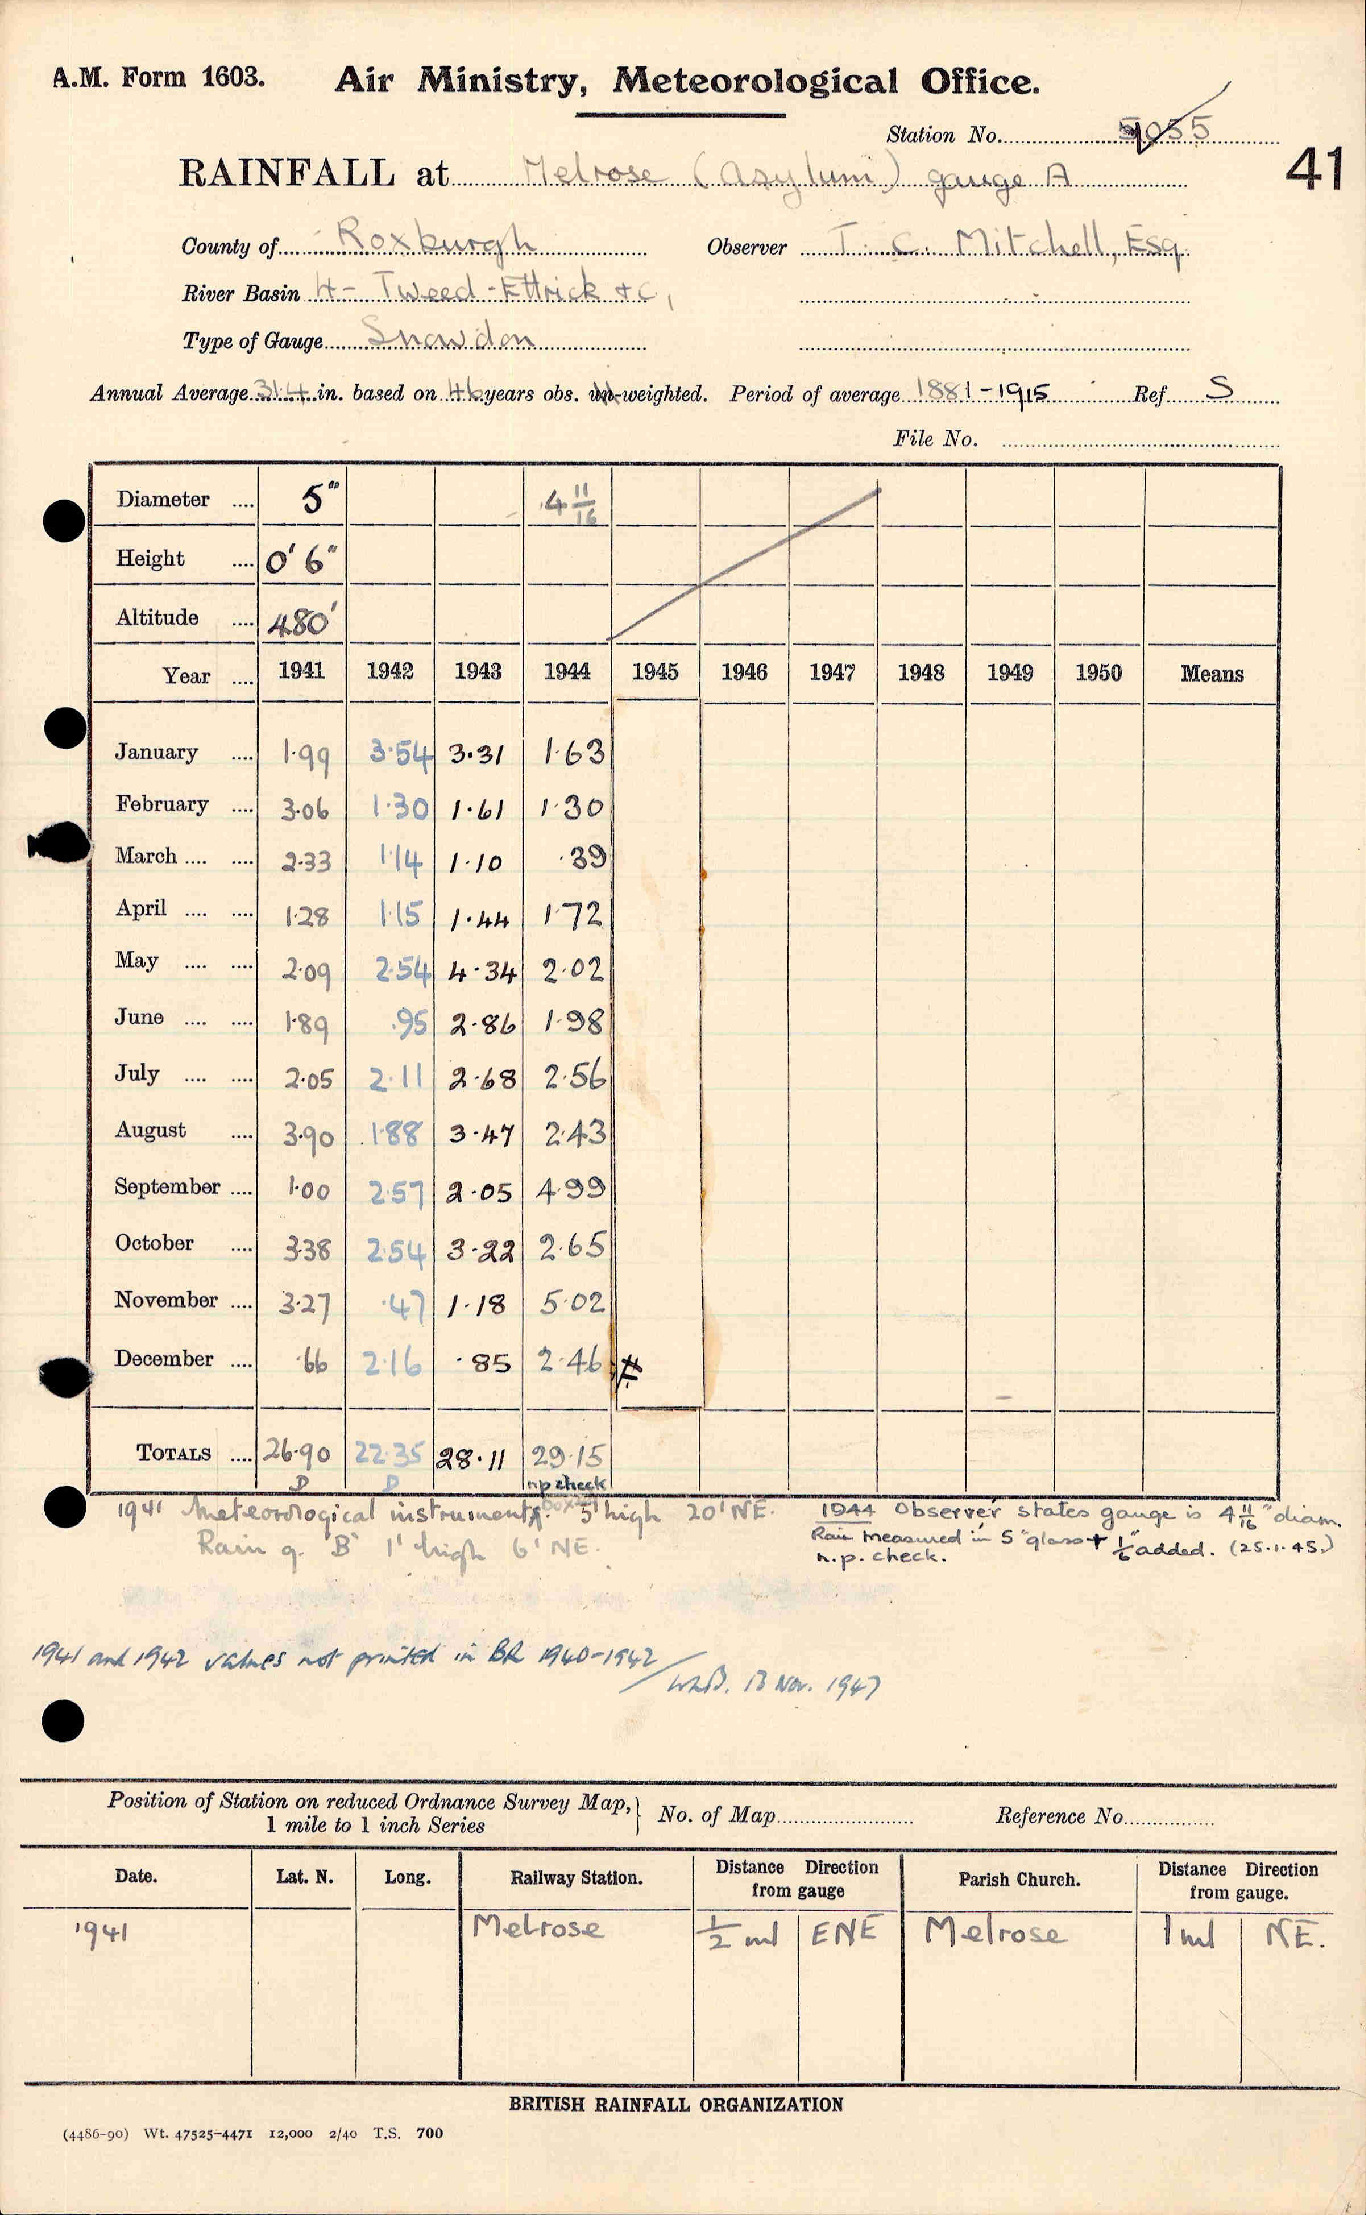 A.M. Form 1603. Air Ministry, Meteorological Office.
Station No. 9055
RAINFALL at Melrose (Asylum) gauge A 41
County of Roxburgh Observer T. C. Mitchell, Esq.
River Basin 4- Tweed-Ettrick &c,
Type of Gauge Snowdon
Annual Average 31.4 in. based on 46 years obs. un-weighted. Period of average 1881-1915 Ref S
File No.
Diameter .... 5" 4 11/16
Height .... 0' 6"
Altitude .... 480'
Year .... 1941 1942 1943 1944 1945 1946 1947 1948 1949 1950 Means
January .... 1.99 3.54 3.31 1.63
February .... 3.06 1.30 1.61 1.30
March .... .... 2.33 1.14 1.10 .39
April .... .... 1.28 1.15 1.44 1.72
May .... .... 2.09 2.54 4.34 2.02
June .... .... 1.89 .95 2.86 1.98
July .... .... 2.05 2.11 2.68 2.56
August .... 3.90 1.88 3.47 2.43
September .... 1.00 2.57 2.05 4.99
October .... 3.38 2.54 3.22 2.65
November .... 3.27 .47 1.18 5.02
December .... .66 2.16 .85 2.46 #
TOTALS .... 26.90 22.35 28.11 29.15
D D n.p check
1941 Meteorological instruments 5' high 20' NE. 1944 Observer states gauge is 4 11/16" diam.
Rain g. 'B' 1' high 6' NE. Rain measured in 5" glass + 1/6 added. (25.1.45.)
n.p. check.
1941 and 1942 values not printed in BR 1940-1942
13 Nov. 1947
Position of Station on reduced Ordnance Survey Map, } No. of Map Reference No.
1 mile to 1 inch Series
Date. Lat. N. Long. Railway Station. Distance Direction from gauge Parish Church. Distance Direction from gauge.
1941 Melrose 1/2 ml ENE Melrose 1 ml NE.
BRITISH RAINFALL ORGANIZATION
(4486-90) Wt. 47525-4471 12,000 2/40 T.S. 700